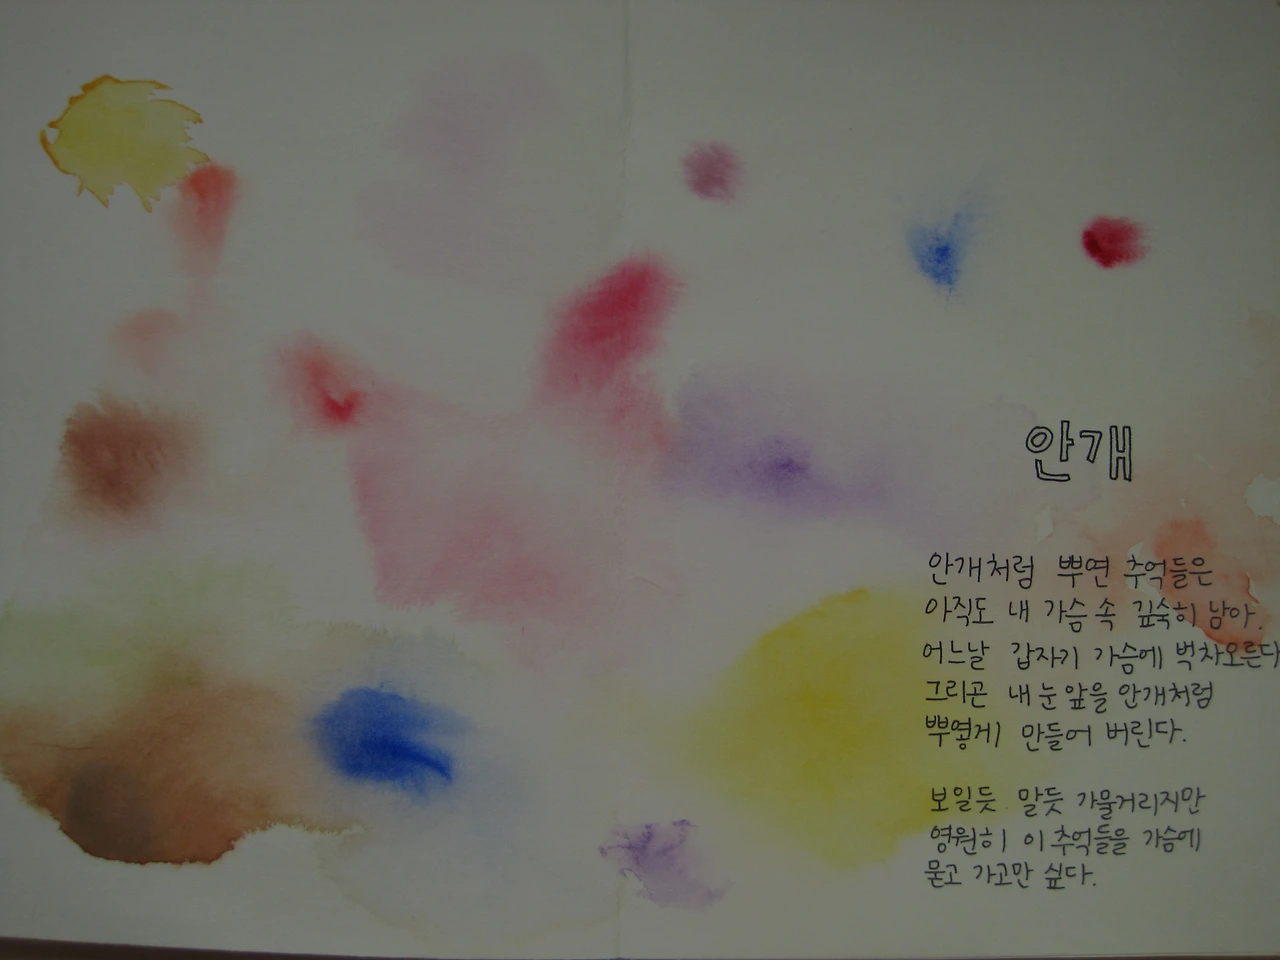 안개
안개처럼 뿌연 추억들은
아직도 내 가슴 속 깊숙히 남아.
어느날 갑자기 가슴에 벅차오른다
그리곤 내 눈 앞을 안개처럼
뿌옇게 만들어 버린다.
보일듯 말듯 가물거리지만
영원히 이 추억들을 가슴에
묻고 가고만 싶다.